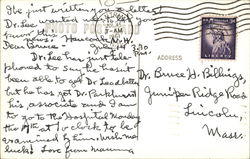 I've just written you a letter
Dr. Lee wanted me to let you
know
Dear Bruce - July 14 3:30
Dr Lee has just tele
phoned to say he hasn't
been able to get Dr Leadbetter
but he has got Dr. Parkhurst
his associate and I am
to go to the Hospital Monday
the 17th at 10 o'clock to be
examined by him. Wish me
luck! Love from Mamma
AM
ADDRESS
LIBERTY
3¢
Dr. Bruce H. Billings,
Juniper Ridge Road
Lincoln,
Mass.